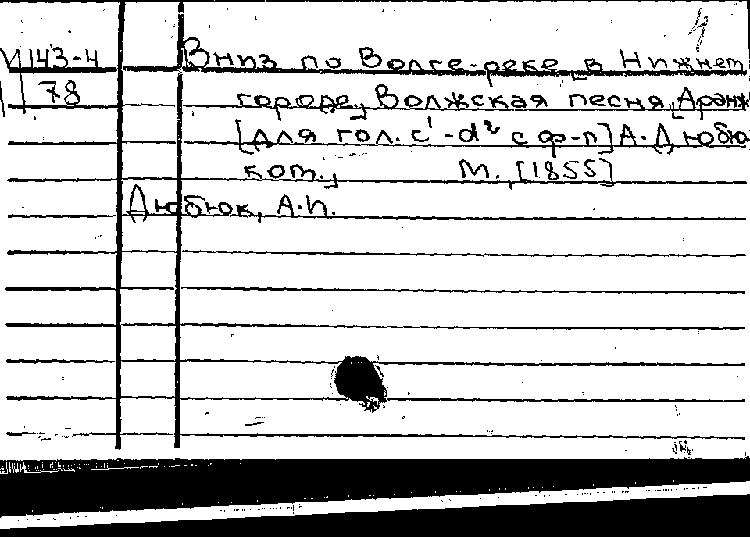 4
М 143-4 Вниз по Волге-реке, в Нижнем
78 городе, Волжская песня, Аранж
[для гол. c¹-d² с ф-п] А. Дюбю
ком., М., [1855]
Дюбюк, А.И.